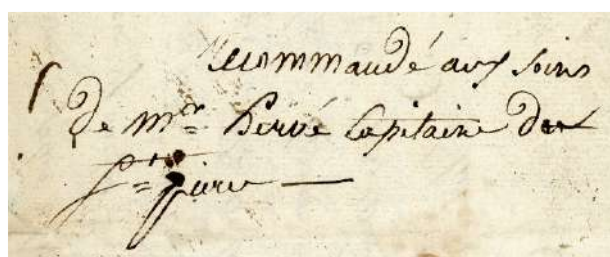 recommandé aux soins
de mer Hervé Capitaine du
st pierre